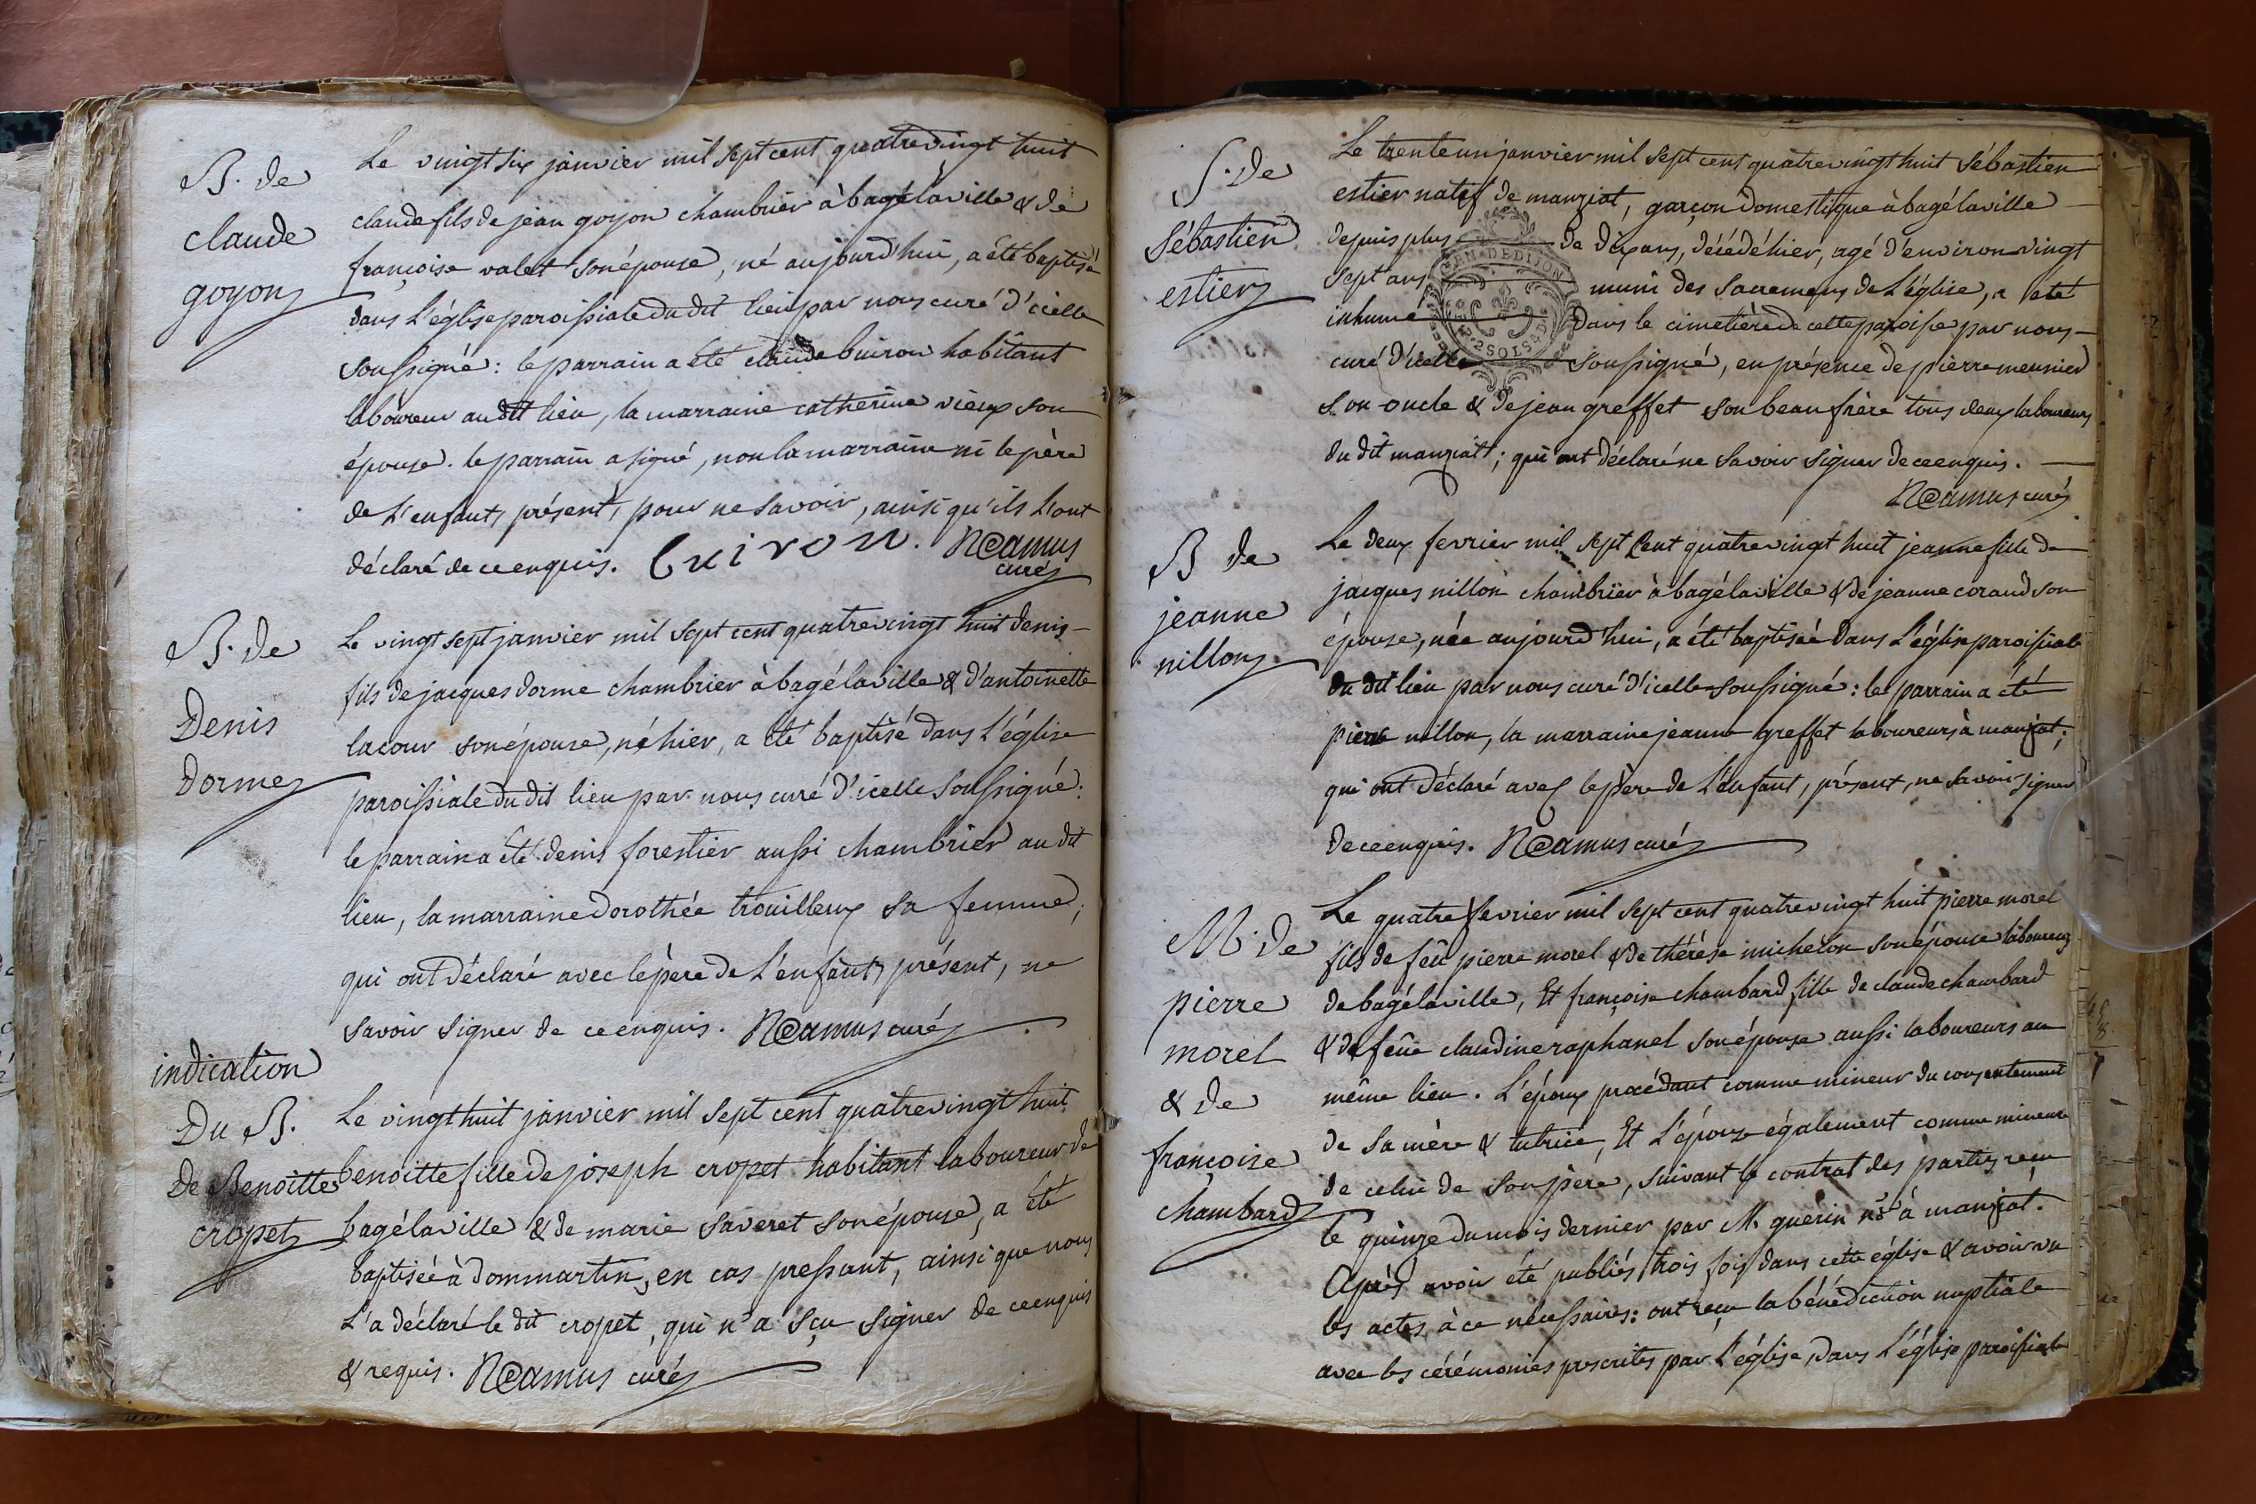 B. de
claude
goyon
Le vingt six janvier mil sept cent quatre vingt huit
claude fils de jean goyon chambrier à bagé la ville & de
françoise valet son épouse, né aujourd'hui, a été baptisé
dans l'église paroissiale du dit lieu par nous curé d'icelle
soussigné : le parrain a été claude buiron habitant
laboureur au dit lieu, la marraine catherine vieux son
épouse. le parrain a signé, non la marraine ni le père
de l'enfant, présent, pour ne savoir, ainsi qu'ils l'ont
déclaré de ce enquis. buiron. Neamus
curé
B. de
Denis
Dorme
Le vingt sept janvier mil sept cent quatre vingt huit denis
fils de jacques dorme chambrier à bagé la ville & d'antoinette
lacour son épouse, né hier, a été baptisé dans l'église
paroissiale du dit lieu par nous curé d'icelle soussigné :
le parrain a été denis forestier aussi chambrier au dit
lieu, la marraine dorothée trouilleux sa femme ;
qui ont déclaré avec le père de l'enfant, présent, ne
savoir signer de ce enquis. Neamus curé
indication
Du B.
De Benoitte
cropet
Le vingt huit janvier mil sept cent quatre vingt huit
benoitte fille de joseph cropet habitant laboureur de
bagé la ville & de marie saveret son épouse, a été
baptisée à dommartin, en cas pressant, ainsi que nous
l'a déclaré le dit cropet, qui n'a sçu signer de ce enquis
& requis. Neamus curé
S. de
Sébastien
estier
Le trente un janvier mil sept cent quatre vingt huit Sébastien
estier natif de manziat, garçon domestique à bagé la ville
depuis plus de dix ans, décédé hier, agé d'environ vingt
sept ans muni des sacremens de l'église, a été
inhumé dans le cimetière de cette paroisse par nous
curé d'icelle soussigné, en présence de pierre meunier
son oncle & de jean greffet son beau frère tous deux laboureurs
du dit manziat ; qui ont déclaré ne savoir signer de ce enquis.
Neamus curé
GEN. DE DIJON
2 SOLS
B de
jeanne
nillon
Le deux fevrier mil sept cent quatre vingt huit jeanne fille de
jacques nillon chambrier à bagé la ville & de jeanne corand son
épouse, née aujourd'hui, a été baptisée dans l'église paroissiale
du dit lieu par nous curé d'icelle soussigné : le parrain a été
pierre nillon, la marraine jeanne greffet laboureurs à manziat ;
qui ont déclaré avec le père de l'enfant, présent, ne savoir signer
de ce enquis. Neamus curé
M. de
pierre
morel
& de
françoise
chambard
Le quatre fevrier mil sept cent quatre vingt huit pierre morel
fils de feû pierre morel & de thérèse michelon son épouse laboureurs
de bagé la ville, Et françoise chambard fille de claude chambard
& de feûe claudine raphanel son épouse aussi laboureurs au
même lieu. L'époux procédant comme mineur du consentement
de sa mère & tutrice, Et l'épouze également comme mineure
de celui de son père, suivant le contrat des parties reçu
le quinze du mois dernier par M. guerin n.re à manziat.
Après avoir été publiés trois fois dans cette église & avoir vu
les actes à ce nécessaires : ont reçu la bénédiction nuptiale
avec les cérémonies prescrites par l'église, dans l'église paroissiale